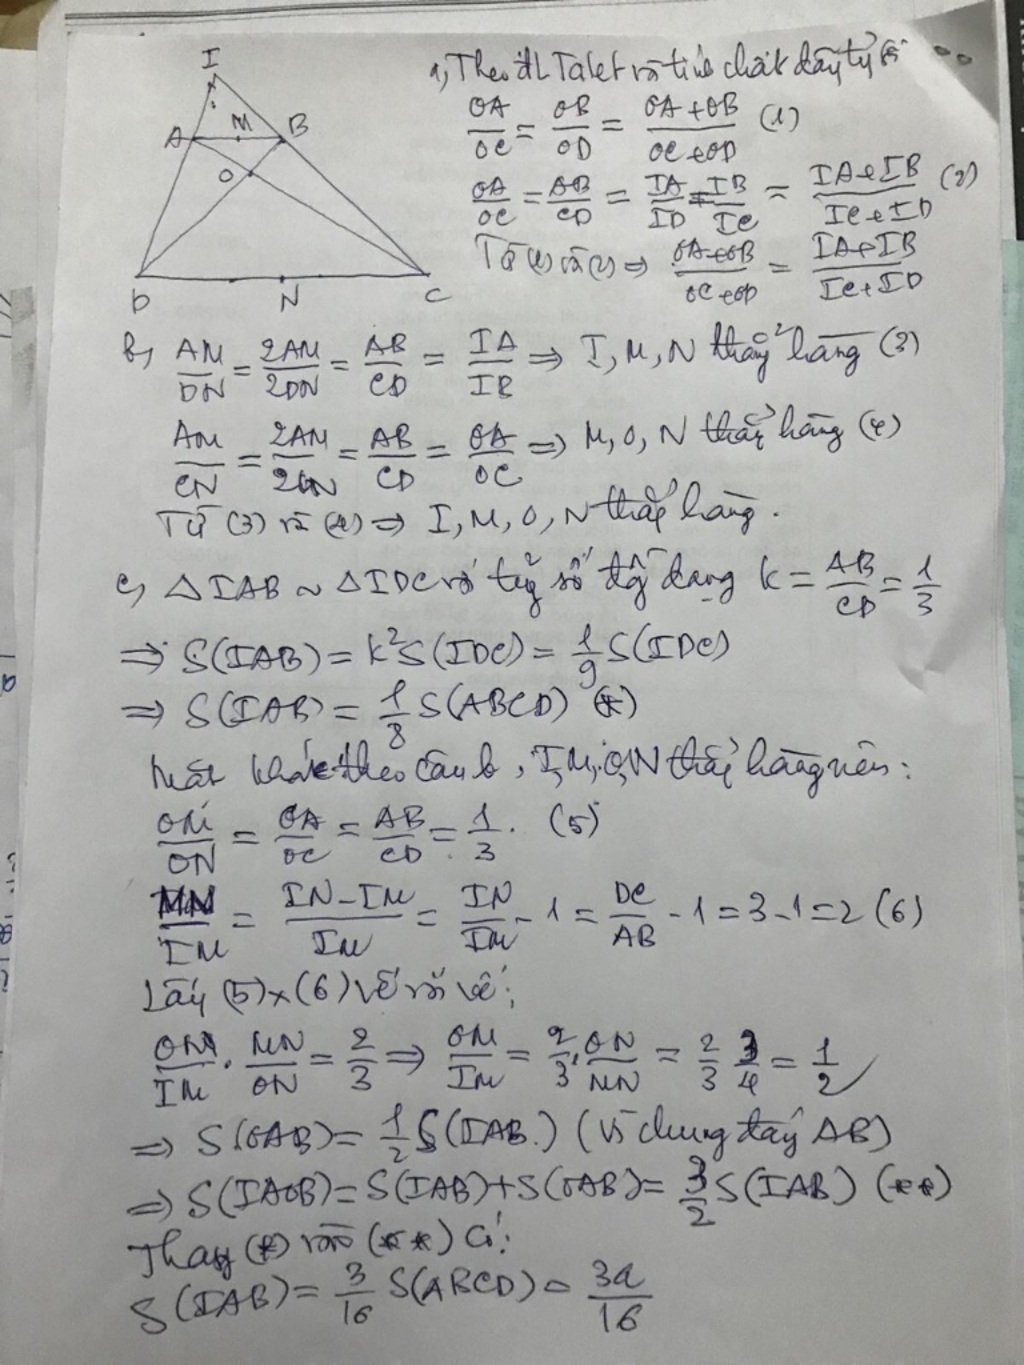 I
A M B
O
D N C
a, Theo đL Talet và tính chất dãy tỷ số
OA/OC = OB/OD = (OA+OB)/(OC+OD) (1)
OA/OC = AB/CD = IA/ID = IB/IC = (IA+IB)/(IC+ID) (2)
Từ (1) và (2) ⇒ (OA+OB)/(OC+OD) = (IA+IB)/(IC+ID)
b, AM/DN = 2AM/2DN = AB/CD = IA/IB ⇒ I, M, N thẳng hàng (3)
AM/CN = 2AM/2CN = AB/CD = OA/OC ⇒ M, O, N thẳng hàng (4)
Từ (3) và (4) ⇒ I, M, O, N thẳng hàng.
c, ΔIAB ~ ΔIDC với tỷ số đồng dạng k = AB/CD = 1/3
⇒ S(IAB) = k²S(IDC) = 1/9 S(IDC)
⇒ S(IAB) = 1/8 S(ABCD) (*)
Mặt khác theo câu b, I, M, O, N thẳng hàng nên:
OM/ON = OA/OC = AB/CD = 1/3. (5)
MN/IM = (IN-IM)/IM = IN/IM - 1 = DC/AB - 1 = 3-1 = 2 (6)
Lấy (5)x(6) vế với vế:
OM/IM . MN/ON = 2/3 ⇒ OM/IM = 2/3 . ON/MN = 2/3 3/4 = 1/2
⇒ S(OAB) = 1/2 S(IAB.) (Vì chung đáy AB)
⇒ S(IAOB) = S(IAB)+S(OAB) = 3/2 S(IAB) (**)
Thay (*) vào (**) Có:
S(IAB) = 3/16 S(ABCD) = 3a/16